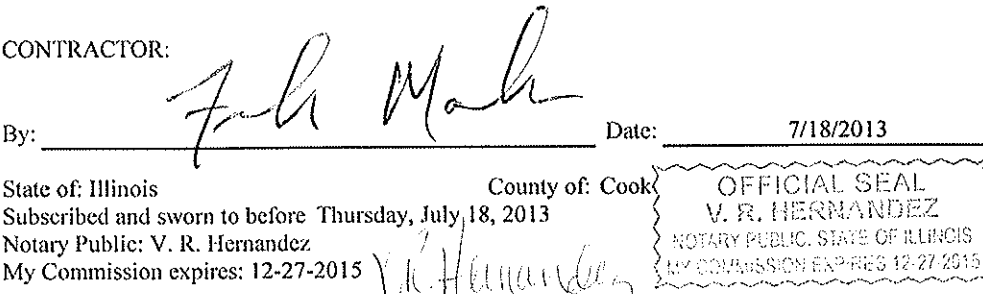 CONTRACTOR:
By: Date: 7/18/2013
State of: Illinois County of: Cook
Subscribed and sworn to before Thursday, July 18, 2013
Notary Public: V. R. Hernandez
My Commission expires: 12-27-2015
V.R. Hernandez
OFFICIAL SEAL
V. R. HERNANDEZ
NOTARY PUBLIC, STATE OF ILLINOIS
MY COMMISSION EXPIRES 12-27-2015